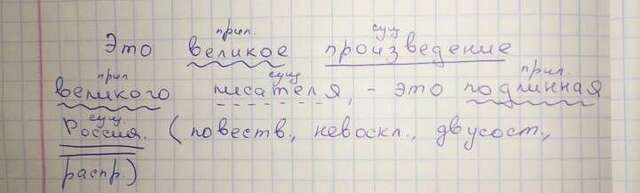 прил. сущ
Это великое произведение
прил сущ прил.
великого писателя, - это подлинная
сущ.
Россия. (повеств., невоскл., двусост.,
распр.)